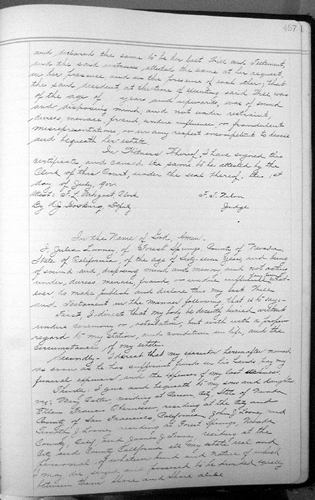 467
and declared the same to be her last Will and Testament,
and the said witnesses attested the same at her request
in her presence and in the presence of each other; that
the said decedent at the time of executing said Will was
of the age of years and upwards, was of sound
and disposing mind, and not under restraint,
duress, menace, fraud, undue influence or fraudulent
misrepresentations, or in any respect incompetent to devise
and bequeath her estate.
In Witness Thereof, I have signed this
certificate, and caused the same to be attested by the
Clerk of this Court, under the seal thereof, this 1st
day of July, 190
Attest: Clerk
By Deputy
F. T. Nilon
Judge
In the Name of God, Amen.
I, Julia of Forest Springs County of Nevada,
State of California, of the age of sixty-seven Years and being
of sound and disposing mind and memory and not acting
under duress, menace, fraud or undue influence
do make publish and declare this my last Will
and Testament in the manner following that is to say:
First, I direct that my body be decently buried without
undue ceremony or ostentation, but with proper
regard to my station and condition in life, and the
circumstances of my estate.
Secondly, I direct that my executor hereinafter named
as soon as he has sufficient funds in his hands, pay my
funeral expenses and the expenses of my last sickness.
Thirdly, I give and bequeath to my sons and daughters
viz: Mary residing at Carson City, State of Nevada
Ellen Frances residing at the City and
County of San Francisco, California, John J.
residing at Forest Springs, Nevada
County, Calif. and James J. residing at the
City and County California all my estate, real and
personal of whatever kind and nature of which
I may die seized and possessed to be divided equally
between them share and share alike